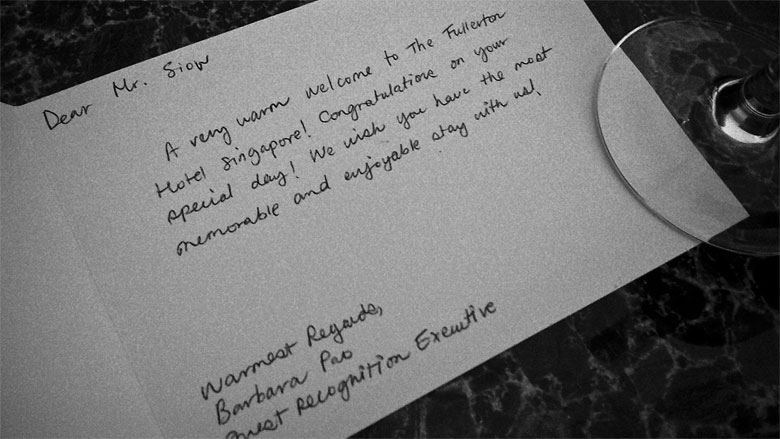 Dear Mr. Siow
A very warm welcome to The Fullerton
Hotel Singapore! Congratulations on your
special day! We wish you have the most
memorable and enjoyable stay with us!
Warmest Regards,
Barbara Pao
Guest Recognition Executive